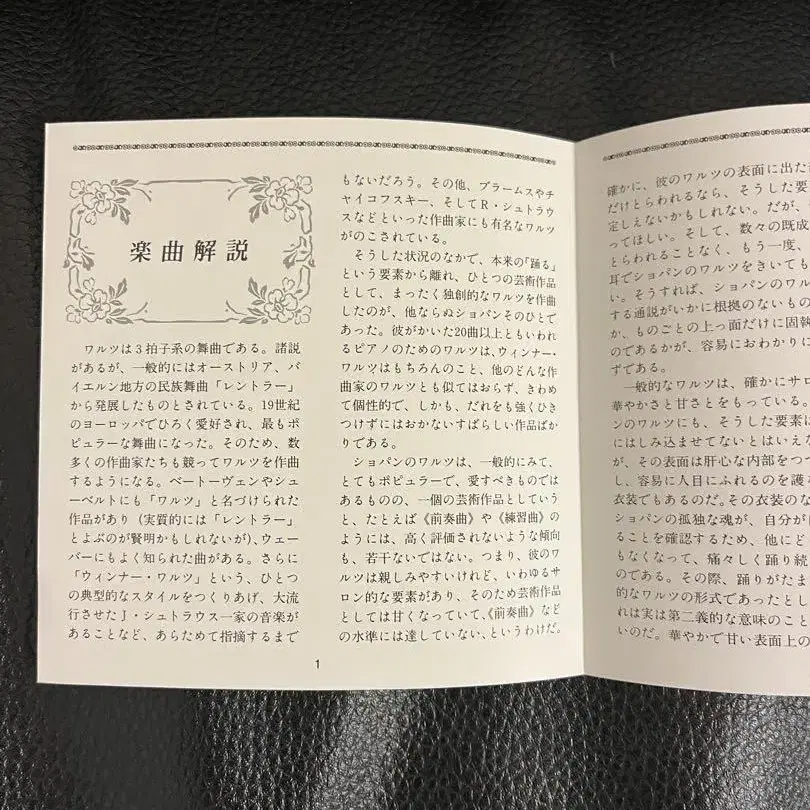 楽曲解説
ワルツは3拍子系の舞曲である。諸説
があるが、一般的にはオーストリア、バ
イエルン地方の民族舞曲「レントラー」
から発展したものとされている。19世紀
のヨーロッパでひろく愛好され、最もポ
ピュラーな舞曲になった。そのため、数
多くの作曲家たちも競ってワルツを作曲
するようになる。ベートーヴェンやシュ
ーベルトにも「ワルツ」と名づけられた
作品があり(実質的には「レントラー」
とよぶのが賢明かもしれないが)、ウェー
バーにもよく知られた曲がある。さらに
「ウィンナー・ワルツ」という、ひとつ
の典型的なスタイルをつくりあげ、大流
行させたJ・シュトラウス一家の音楽が
あることなど、あらためて指摘するまで
もないだろう。その他、ブラームスやチ
ャイコフスキー、そしてR・シュトラウ
スなどといった作曲家にも有名なワルツ
がのこされている。
そうした状況のなかで、本来の「踊る」
という要素から離れ、ひとつの芸術作品
として、まったく独創的なワルツを作曲
したのが、他ならぬショパンそのひとで
あった。彼がかいた20曲以上ともいわれ
るピアノのためのワルツは、ウィンナー・
ワルツはもちろんのこと、他のどんな作
曲家のワルツとも似てはおらず、きわめ
て個性的で、しかも、だれをも強くひき
つけずにはおかないすばらしい作品ばか
りである。
ショパンのワルツは、一般的にみて、
とてもポピュラーで、愛すべきものでは
あるものの、一個の芸術作品としていう
と、たとえば《前奏曲》や《練習曲》の
ようには、高く評価されないような傾向
も、若干ないではない。つまり、彼のワ
ルツは親しみやすいけれど、いわゆるサ
ロン的な要素があり、そのため芸術作品
としては甘くなっていて、《前奏曲》など
の水準には達していない、というわけだ。
1
確かに、彼のワルツの表面に出た
だけとらわれるなら、そうした要
定しえないかもしれない。だが、
ってほしい。そして、数々の既成
とらわれることなく、もう一度、
耳でショパンのワルツをきいても
い。そうすれば、ショパンのワル
する通説がいかに根拠のないもの
か、ものごとの上っ面だけに固執
のであるかが、容易におわかりに
ずである。
一般的なワルツは、確かにサロ
華やかさと甘さとをもっている。
ンのワルツにも、そうした要素は
にはしみ込ませてないとはいえな
が、その表面は肝心な内部をつつ
し、容易に人目にふれるのを護
衣装でもあるのだ。その衣装のな
ショパンの孤独な魂が、自分が
ることを確認するため、他にど
もなくなって、痛々しく踊り続
のである。その際、踊りがたま
的なワルツの形式であったとし
れは実は第二義的な意味のこと
いのだ。華やかで甘い表面上の